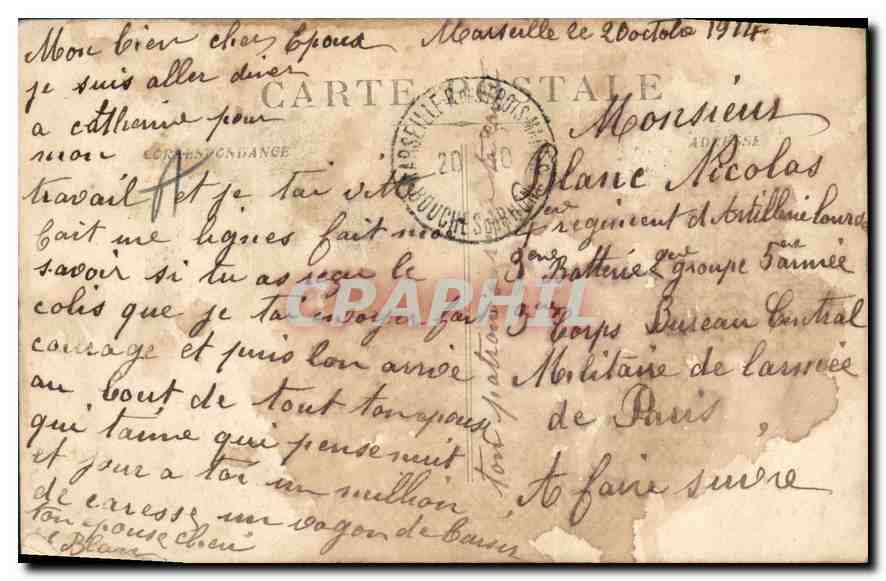 Marseille le 20 octobr 1914
Mon bien cher Epoux
je suis aller diner
a catherine pour
mon
travail et je tai vite
fait une lignes fait moi
savoir si tu as reçu le
colis que je tai envoyer fait
courage et puis lon arrive
au bout de tout ton epouse
qui taime qui pense nuit
et jour a toi un million
de caresse un vagon de baiser
ton epouse cheri
Blanc
CARTE POSTALE
CORRESPONDANCE
ADRESSE
MARSEILLE
20 10
BOUCHES DU RHONE
ton patron
Monsieur
Blanc Nicolas
regiment d Artillerie lourde
9eme Batterie 2eme groupe 5eme armée
3eme Corps Bureau Central
Militaire de larmée
de Paris,
A faire suivre
CPAPHIL